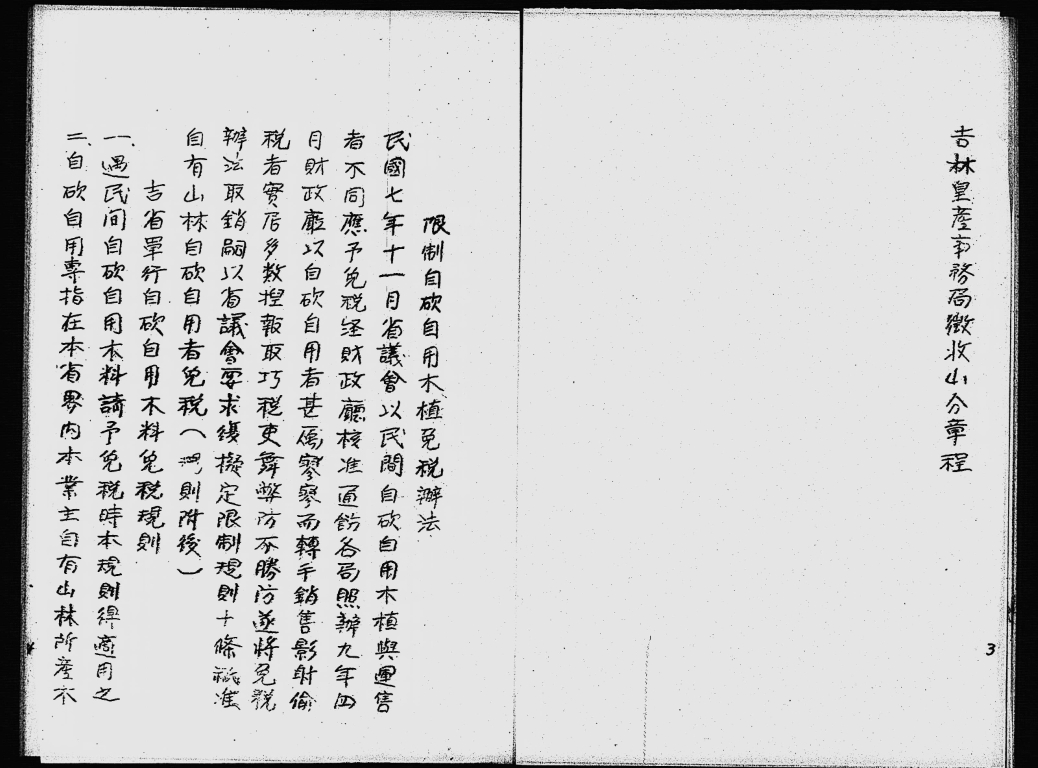 吉林皇產事務局徵收山分章程
3
限制自砍自用木植免税辦法
民國七年十一月省議會以民間自砍自用木植與運售
者不同應予免税経財政廳核准通飭各局照辦九年四
月財政廳以自砍自用者甚属寥寥而轉手銷售影射偷
税者實居多数捏報取巧税吏舞弊防不勝防遂將免税
辦法取銷嗣以省議會要求緩擬定限制規則十條批准
自有山林自砍自用者免税（規則附後）
吉省單行自砍自用木料免税規則
一、遇民间自砍自用木料請予免税時本規則得適用之
二、自砍自用專指在本省界内本業主自有山林所產木